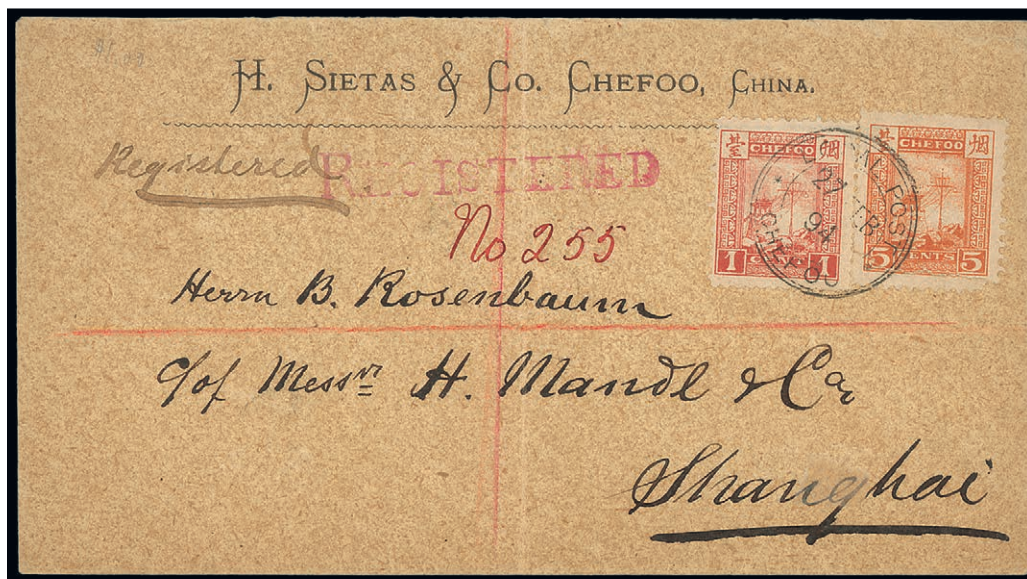 H. SIETAS & CO. CHEFOO, CHINA.
Registered
REGISTERED
No 255
臺 CHEFOO 烟
1 CENT 1
臺 CHEFOO 烟
5 CENTS 5
LOCAL POST
27 FEB
94
CHEFOO
Herrn B. Rosenbaum
c/of Messrs H. Mandl & Co
Shanghai